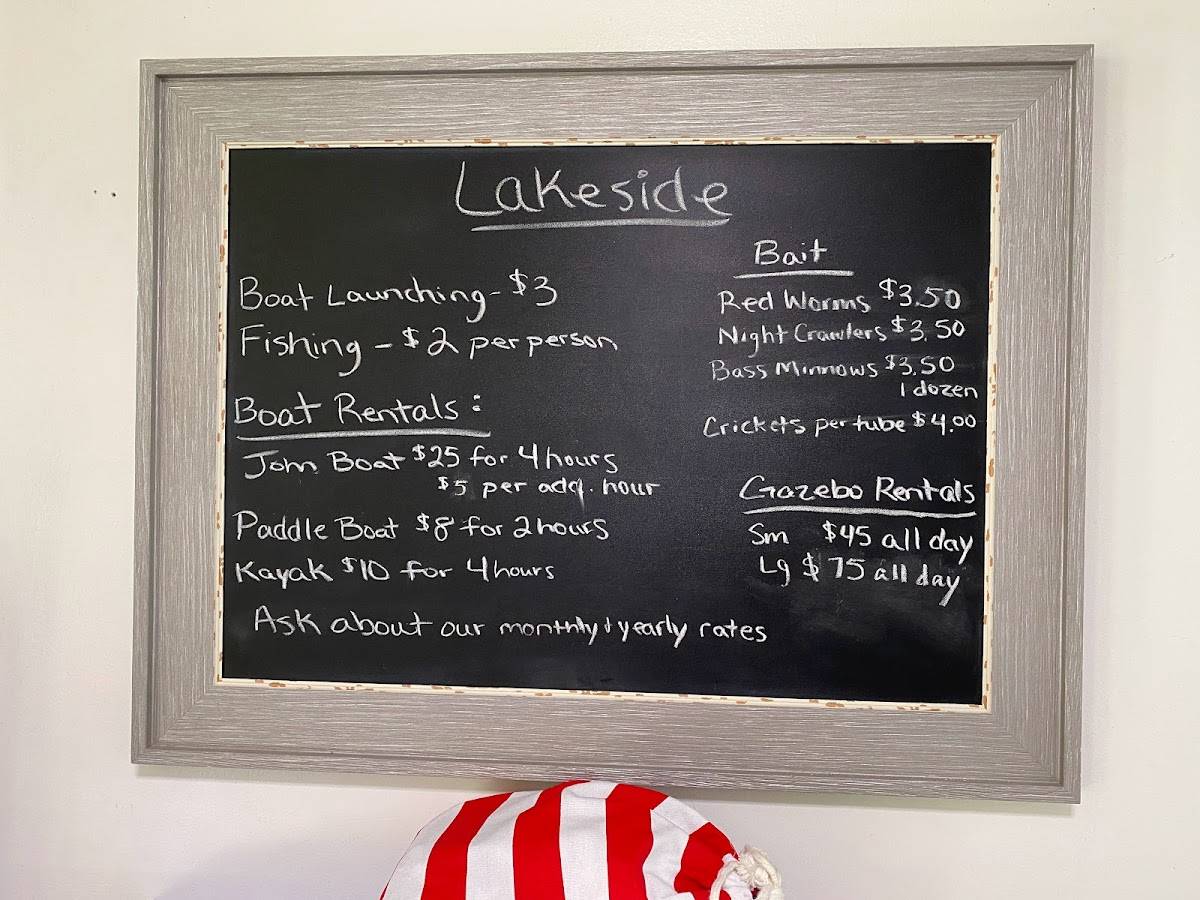 Lakeside
Boat Launching - $3
Fishing - $2 per person
Boat Rentals:
John Boat $25 for 4 hours
$5 per add. hour
Paddle Boat $8 for 2 hours
Kayak $10 for 4 hours
Ask about our monthly & yearly rates
Bait
Red Worms $3.50
Night Crawlers $3.50
Bass Minnows $3.50
1 dozen
Crickets per tube $4.00
Gazebo Rentals
Sm $45 all day
Lg $75 all day